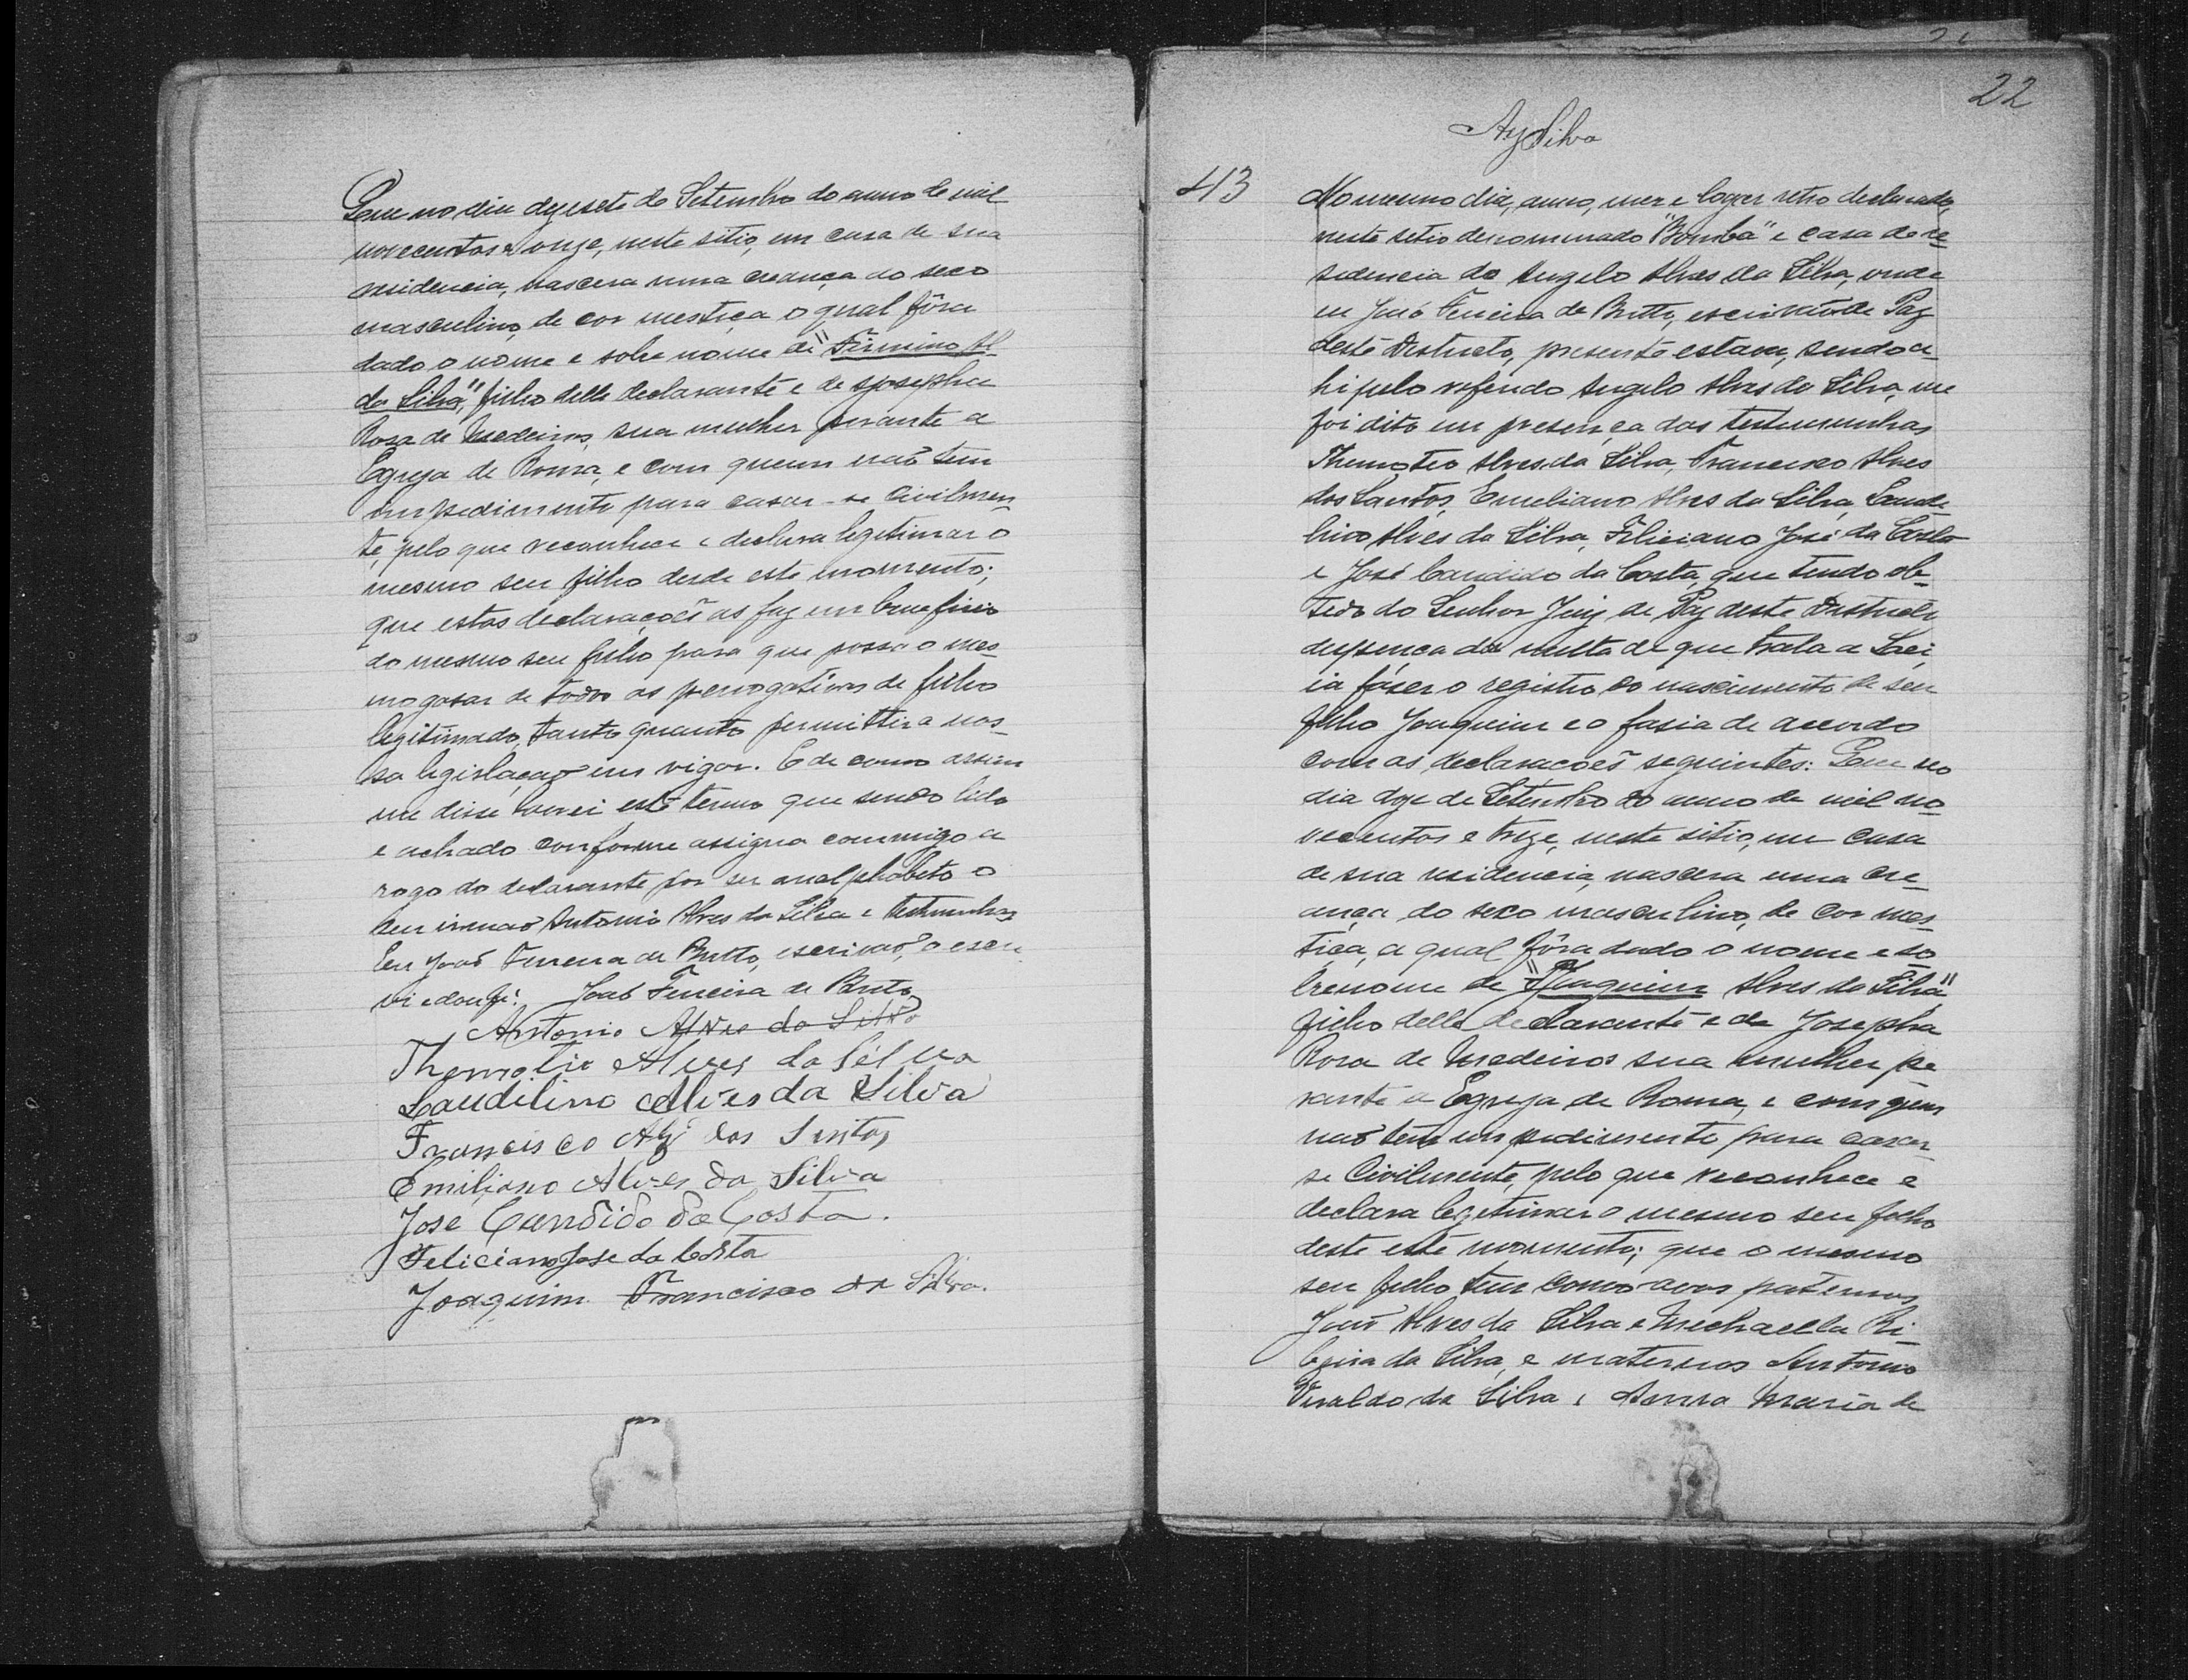 Que no dia deseseté de Setembro do anno de mil
novecentos e onze, neste sitio, em casa de sua
residencia, nascera uma creança do sexo
masculino, de cor mestiça o qual fôra
dado o nome e sobre nome de "Firmino Al.
da Silva," filho delle declarante e de Josepha
Rosa de Medeiros, sua mulher perante a
Egreja de Roma, e com quem naõ tem
impedimento para casar-se Civilmen
te, pelo que reconhece e declara legitimar o
mesmo seu filho desde este momento;
que estas declarações as faz em beneficio
do mesmo seu filho para que possa o mes
mo gosar de todas as perrogativas de filho
legitimado, tanto quanto permittir a nos-
sa legislaçaõ em vigor. E de como assim
me disse lavrei este termo que sendo lido
e achado conforme assigna commigo a
rogo do declarante por ser analphabeto o
seu irmaõ Antonio Alves da Silva e testemunhas
Eu Joaõ Ferreira de Britto, escrivaõ, o escre
vi e dou fé. Joaõ Ferreira de Britto
Antonio Alves da Silva
Themotio Alves da Silva
Laudilino Alves da Silva
Francisco Alz dos Santos
Emiliano Alves da Silva
José Candido da Costa.
Feliciano José da Costa
Joaquim Francisco da Silva.
22
Az Silva
413
No mesmo dia, anno, mez e logar retro declarado,
neste sitio denominado "Bomba" e casa de re
sidencia de Angelo Alves da Silva, onde
eu Joaõ Ferreira de Britto, escrivaõ de Paz
deste Destricto, presente estava, sendo a-
hi pelo referido Angelo Alves da Silva, me
foi dito em presença das testemunhas
Themoteo Alves da Silva, Francisco Alves
dos Santos, Emeliano Alves da Silva, Laude
lino Alves da Silva, Feliciano José da Costa
e José Candido da Costa, que tendo ob-
tido do Senhor Juiz de Paz deste Destricto
despença da multa de que trata a Lei,
ia fáser o registro do nascimento de seu
filho Joaquim e o fasia de accordo
com as declaracões seguintes: Que no
dia doze de Setembro do anno de mil no-
vecentos e treze, neste sitio, em casa
de sua residencia, nascera uma cre-
ança do sexo masculino, de cor mes
tiça, a qual fôra dado o nome e so
brenome de "Joaquim Alves da Silva"
filho delle declarante e de Josepha
Rosa de Medeiros sua mulher pe
rante a Egreja de Roma, e com quem
naõ tem impedimento para casar
se Civilmente, pelo que reconhece e
declara legitimar o mesmo seu filho
deste este momento; que o mesmo
seu filho tem como avos paternos
Joaõ Alves da Silva e Michaella Ri-
beira da Silva, e maternos Antonio
Veraldo da Silva e Anna Maria de